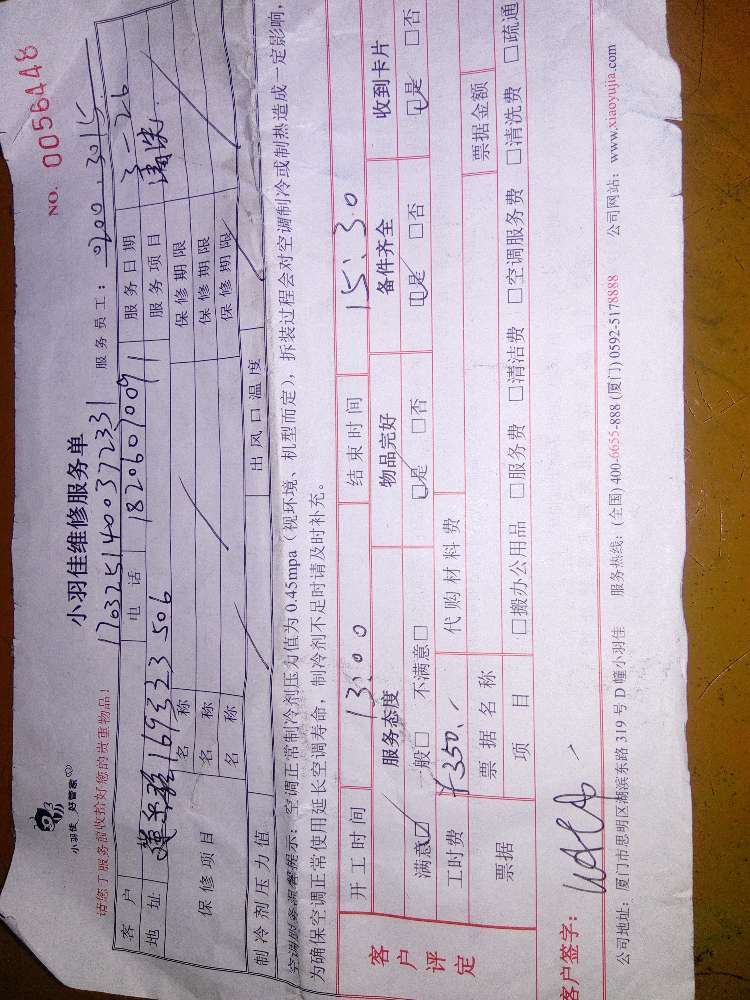 小羽佳 好管家
小羽佳维修服务单
NO. 0056448
请您于服务前收拾好您的贵重物品!
1703251400372331
服务员工: 0200.3015
客户 电话 18206070091 服务日期 3-26
地址 169号23 506 服务项目 清洗
保修项目 名称 保修期限
名称 保修期限
名称 保修期限
制冷剂压力值 出风口温度
空调服务温馨提示:空调正常制冷剂压力值为 0.45mpa(视环境、机型而定),拆装过程会对空调制冷或制热造成一定影响,
为确保空调正常使用延长空调寿命,制冷剂不足时请及时补充。
客户评定
开工时间 13:00 结束时间 15:30
服务态度 物品完好 备件齐全 收到卡片
满意☑ 一般□ 不满意□ ☑是 □否 ☑是 □否 ☑是 □否
工时费 ¥350.- 代购材料费
票据 票据名称 票据金额
项目 □搬办公用品 □服务费 □清洁费 □空调服务费 □清洗费 □疏通
客户签字:
公司地址:厦门市思明区湖滨东路 319 号 D 幢小羽佳 服务热线:(全国) 400-6655-888 (厦门) 0592-5178888 公司网站:www.xiaoyujia.com